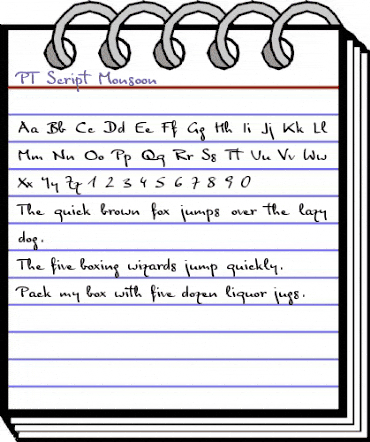 PT Script Monsoon
Aa Bb Cc Dd Ee Ff Gg Hh Ii Jj Kk Ll
Mm Nn Oo Pp Qq Rr Ss Tt Uu Vv Ww
Xx Yy Zz 1 2 3 4 5 6 7 8 9 0
The quick brown fox jumps over the lazy
dog.
The five boxing wizards jump quickly.
Pack my box with five dozen liquor jugs.